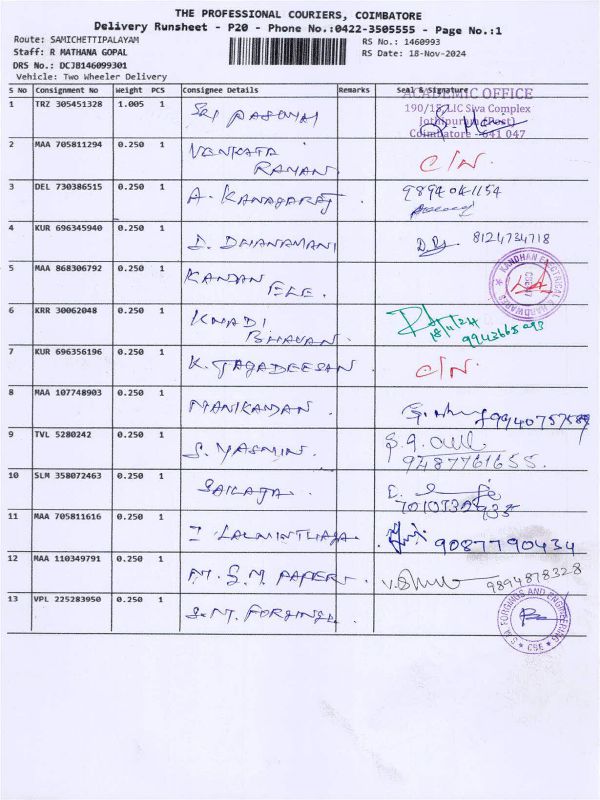 THE PROFESSIONAL COURIERS, COIMBATORE
Delivery Runsheet - P20 - Phone No.:0422-3505555 - Page No.:1
Route: SAMICHETTIPALAYAM
RS No.: 1460993
Staff: R MATHANA GOPAL
RS Date: 18-Nov-2024
DRS No.: DCJB146099301
Vehicle: Two Wheeler Delivery
S No Consignment No Weight PCS Consignee Details Remarks Seal & Signature
ACADEMIC OFFICE
1 TRZ 305451328 1.005 1 SRI
190/1 LIC Siva Complex
Jothipuram (Post)
Coimbatore - 641 047
2 MAA 705811294 0.250 1 VENKATA
RAMAN C/N.
3 DEL 730386515 0.250 1 A. KANAGARAJ
4 KUR 696345940 0.250 1 D. DHANAMANI 8124734718
5 MAA 868306792 0.250 1 KANDAN
ELE.
KANDHAN ELECTRICAL & HARDWARES
6 KRR 30062048 0.250 1
BHAVAN.
18/11/24
7 KUR 696356196 0.250 1 K. JAGADEESAN C/N.
8 MAA 107748903 0.250 1 MANIKANDAN.
9 TVL 5280242 0.250 1 S. YASMIN.
9487761655.
10 SLM 358072463 0.250 1 SAILAJA
11 MAA 705811616 0.250 1 9087790434
12 MAA 110349791 0.250 1 PAPERS V.
9894878328
13 VPL 225283950 0.250 1 S.M. FORGINGS.
S.M. FORGINGS AND ENGINEERING
CBE